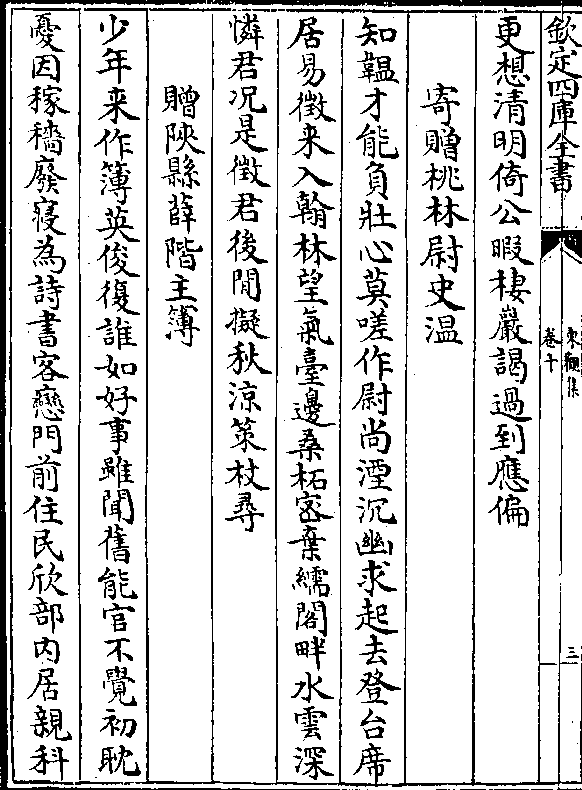 欽定四庫全書
東觀集
卷十
三
更想清明倚公暇棲巖謁過到應偏
寄贈桃林尉史温
知韞才能負壯心莫嗟作尉尚湮沉幽求起去登台席
居易徵来入翰林望氣臺邊桑柘宻棄繻閣畔水雲深
憐君况是徴君後閒擬秋涼策杖尋
贈陜縣薛階主簿
少年来作簿英俊復誰如好事雖聞舊能官不覺初耽
憂因稼穡廢寢為詩書客戀門前住民欣部内居親科